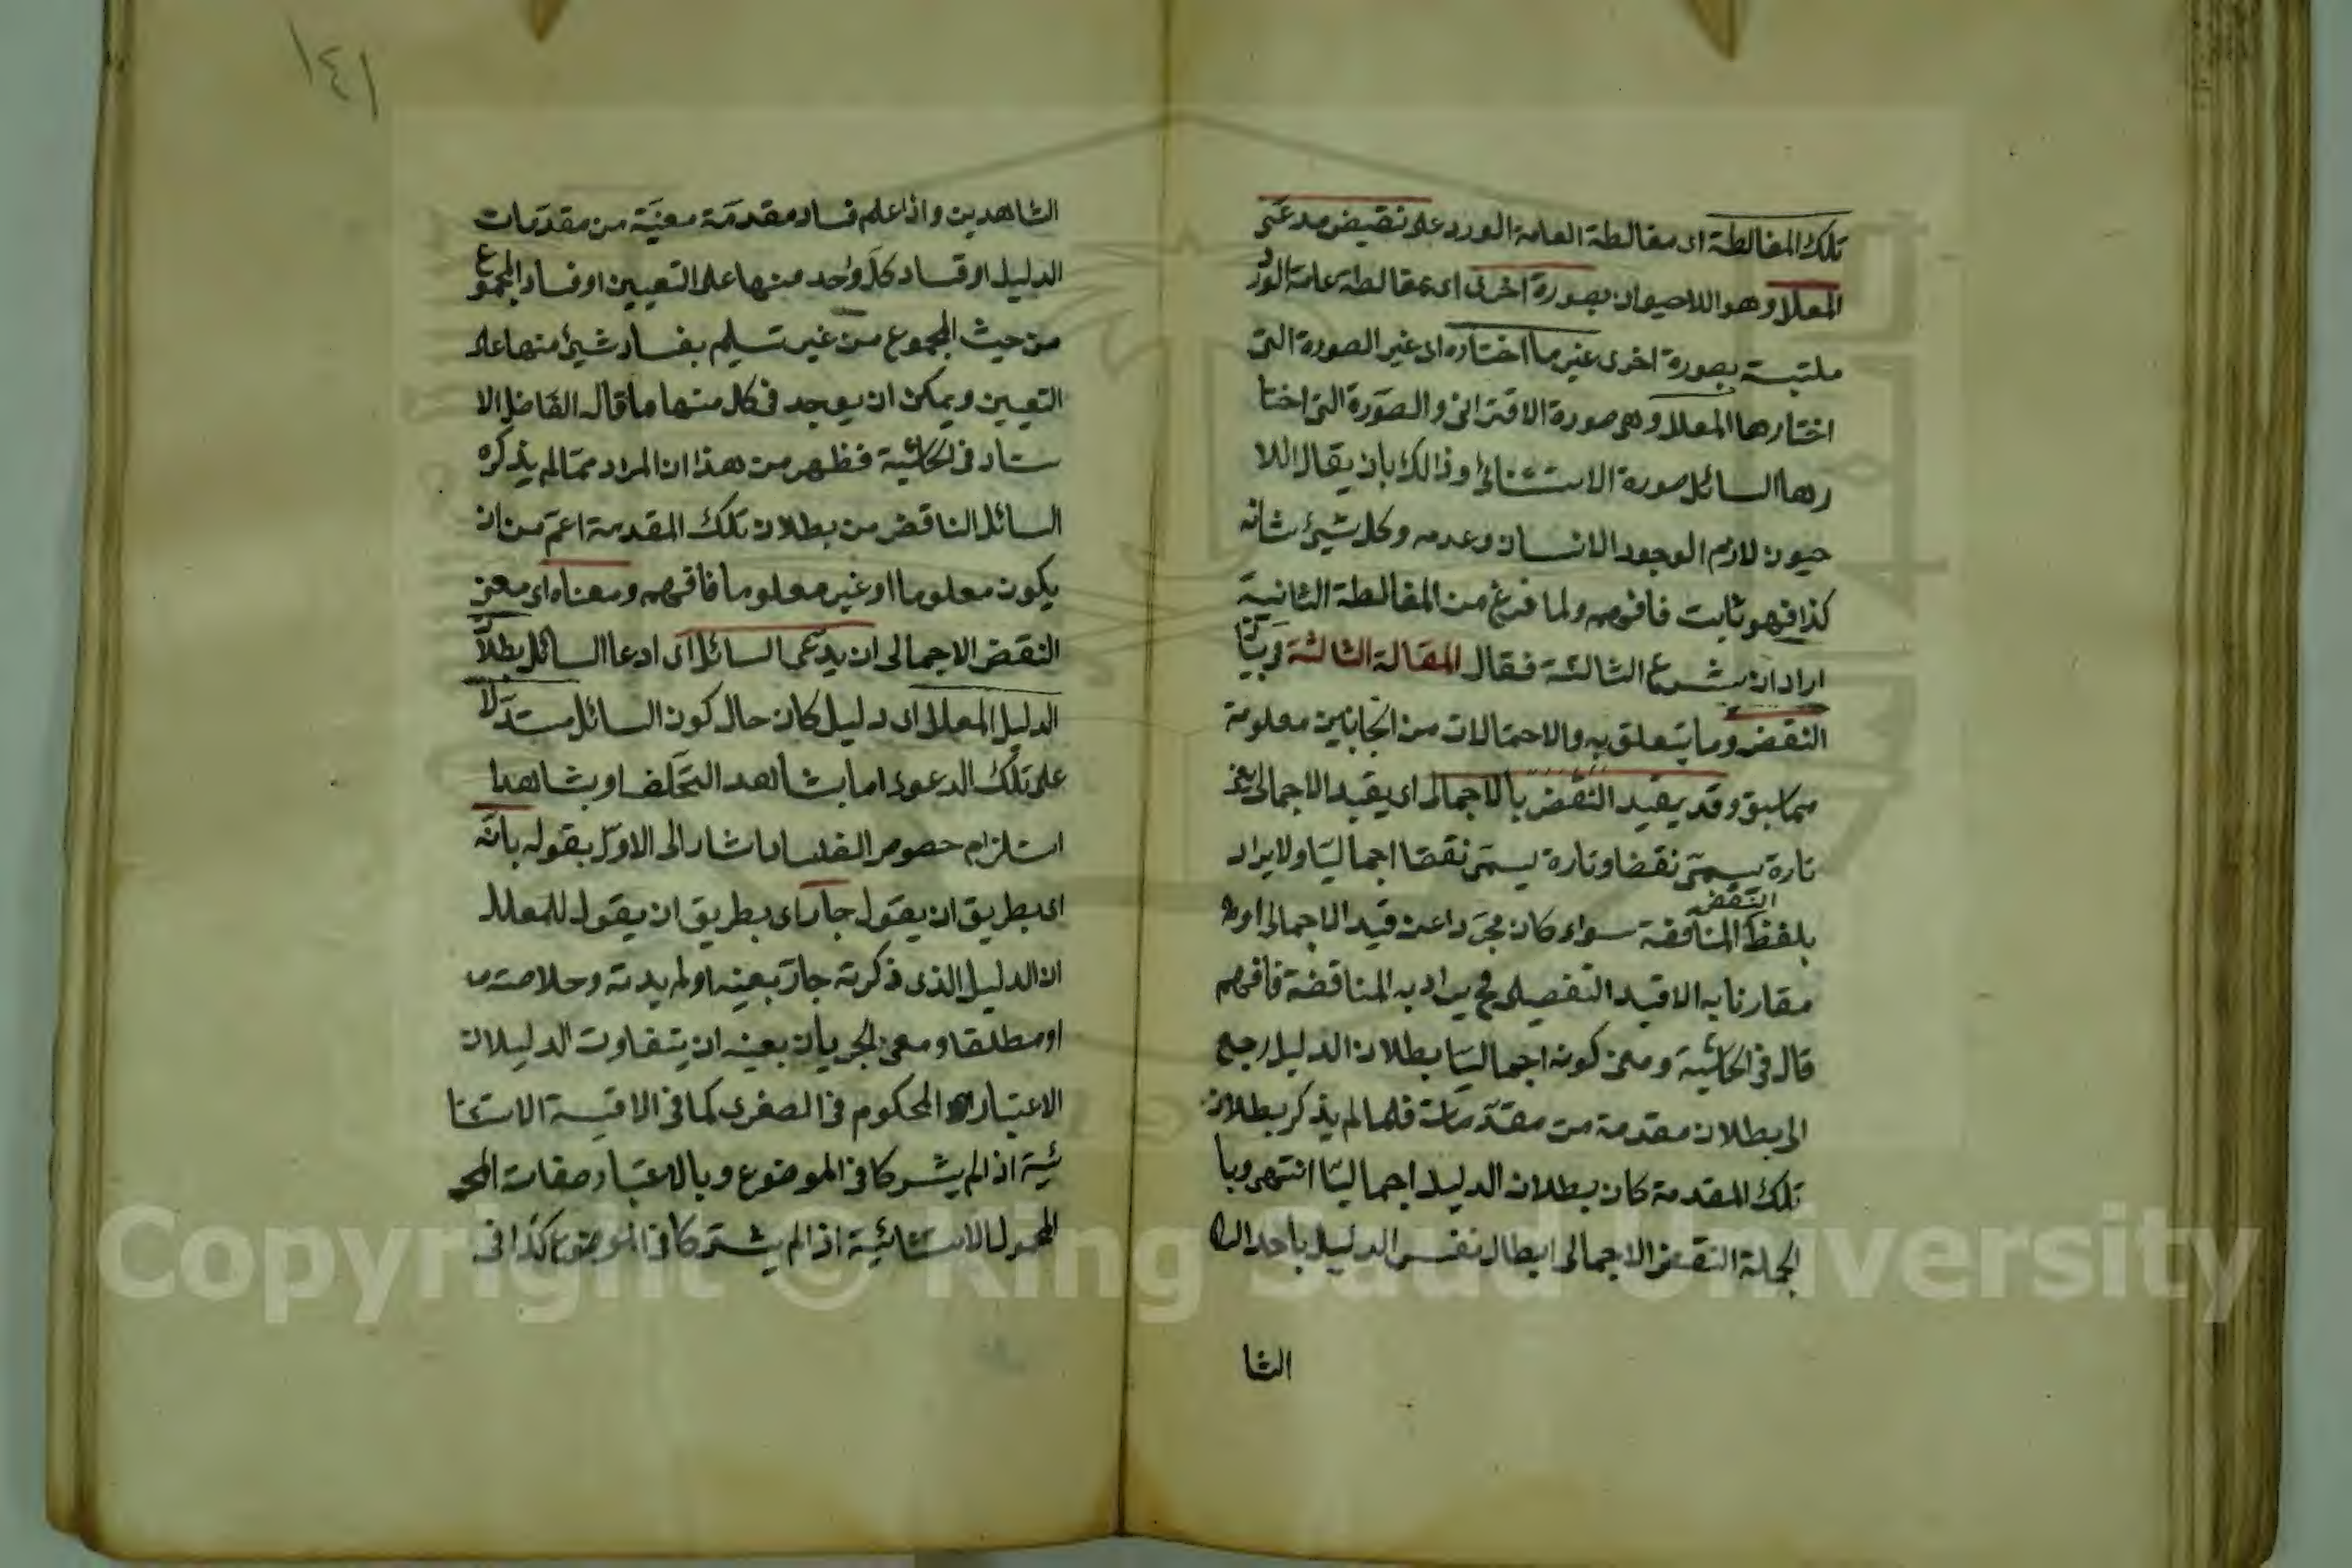 تلك المغالطة اى مغالطة العامة الورود على نقيض مدعى
المعلل وهو اللاحيوان بصورة اخرى اى بمغالطة عامة الورود
ملتبسة بصورة اخرى غير ما اختاره اى غير الصورة التى
اختارها المعلل وهى صورة الاقترانى والصورة التى اختا
رها السائل صورة الاستثنائى وذالك بان يقال اللا
حيون لازم الوجود الانسان وعدمه وكل شيئ شانه
كذا فهو ثابت فافهم ولما فرغ من المغالطة الثانية
اراد ان يشرع الثالثة فقال المقالة الثالثة فى بيان
النقض وما يتعلق به والاحتمالات من الجانبين معلومة
مما سبق وقد يقيد النقض بالاجمالى اى يقيد الاجمالى يعنى
تارة يسمى نقضا وتارة يسمى نقضا اجماليا ولا يراد
النقض
بلفظ المناقضة سواء كان مجردا عن قيد الاجمالى او
مقارنا به الا قيد التفصيلى فح يراد به المناقضة فافهم
قال فى الحاشية ومعنى كونه اجماليا بطلان الدليل رجع
الى بطلان مقدمة من مقدمات فلما لم يذكر بطلان
تلك المقدمة كان بطلان الدليل اجماليا انتهى وبا
لجملة النقض الاجمالى ابطال نفس الدليل باحد
الشا
١٤١
الشاهدين واذا علم فساد مقدمة معينة من مقدمات
الدليل او فساد كل واحد منها على التعيين او فساد المجموع
من حيث المجموع من غير تسليم بفساد شيئ منها على
التعيين ويمكن ان يوجد فى كل منها ما قال الفاضل الا
ستاد فى الحاشية فظهر من هذا ان المراد مما لم يذكره
السائل الناقض من بطلان تلك المقدمة اعم من ان
يكون معلوما او غير معلوما فافهم ومعناه اى معنى
النقض الاجمالى ان يدعى السائل اى ادعا السائل بطلان
الدليل المعلل اى دليل كان حال كون السائل مستدلا
على تلك الدعوى اما بشاهد التخلف او بشاهد
استلزام خصوص الفساد اشار الى الاول بقوله بانه
اى بطريق ان يقول جار اى بطريق ان يقول للمعلل
ان الدليل الذى ذكرته جار بعينه او لم يدته وخلاصته
او مطلقا ومعنى الجريان بعينه ان يتفاوت الدليلان
الاعتبار المحكوم فى الصغرى كما فى الاقيسة الاستثنا
ئية اذا لم يشركا فى الموضوع وبالاعتبار صفات
المحمول الاستثنائية اذا لم يشتركا فى الموضوع كذا فى
Copyright © King Saud University